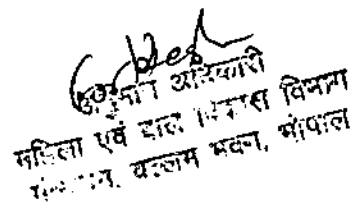 अधिकारी
महिला एवं बाल विकास विभाग
वल्लभ भवन, भोपाल